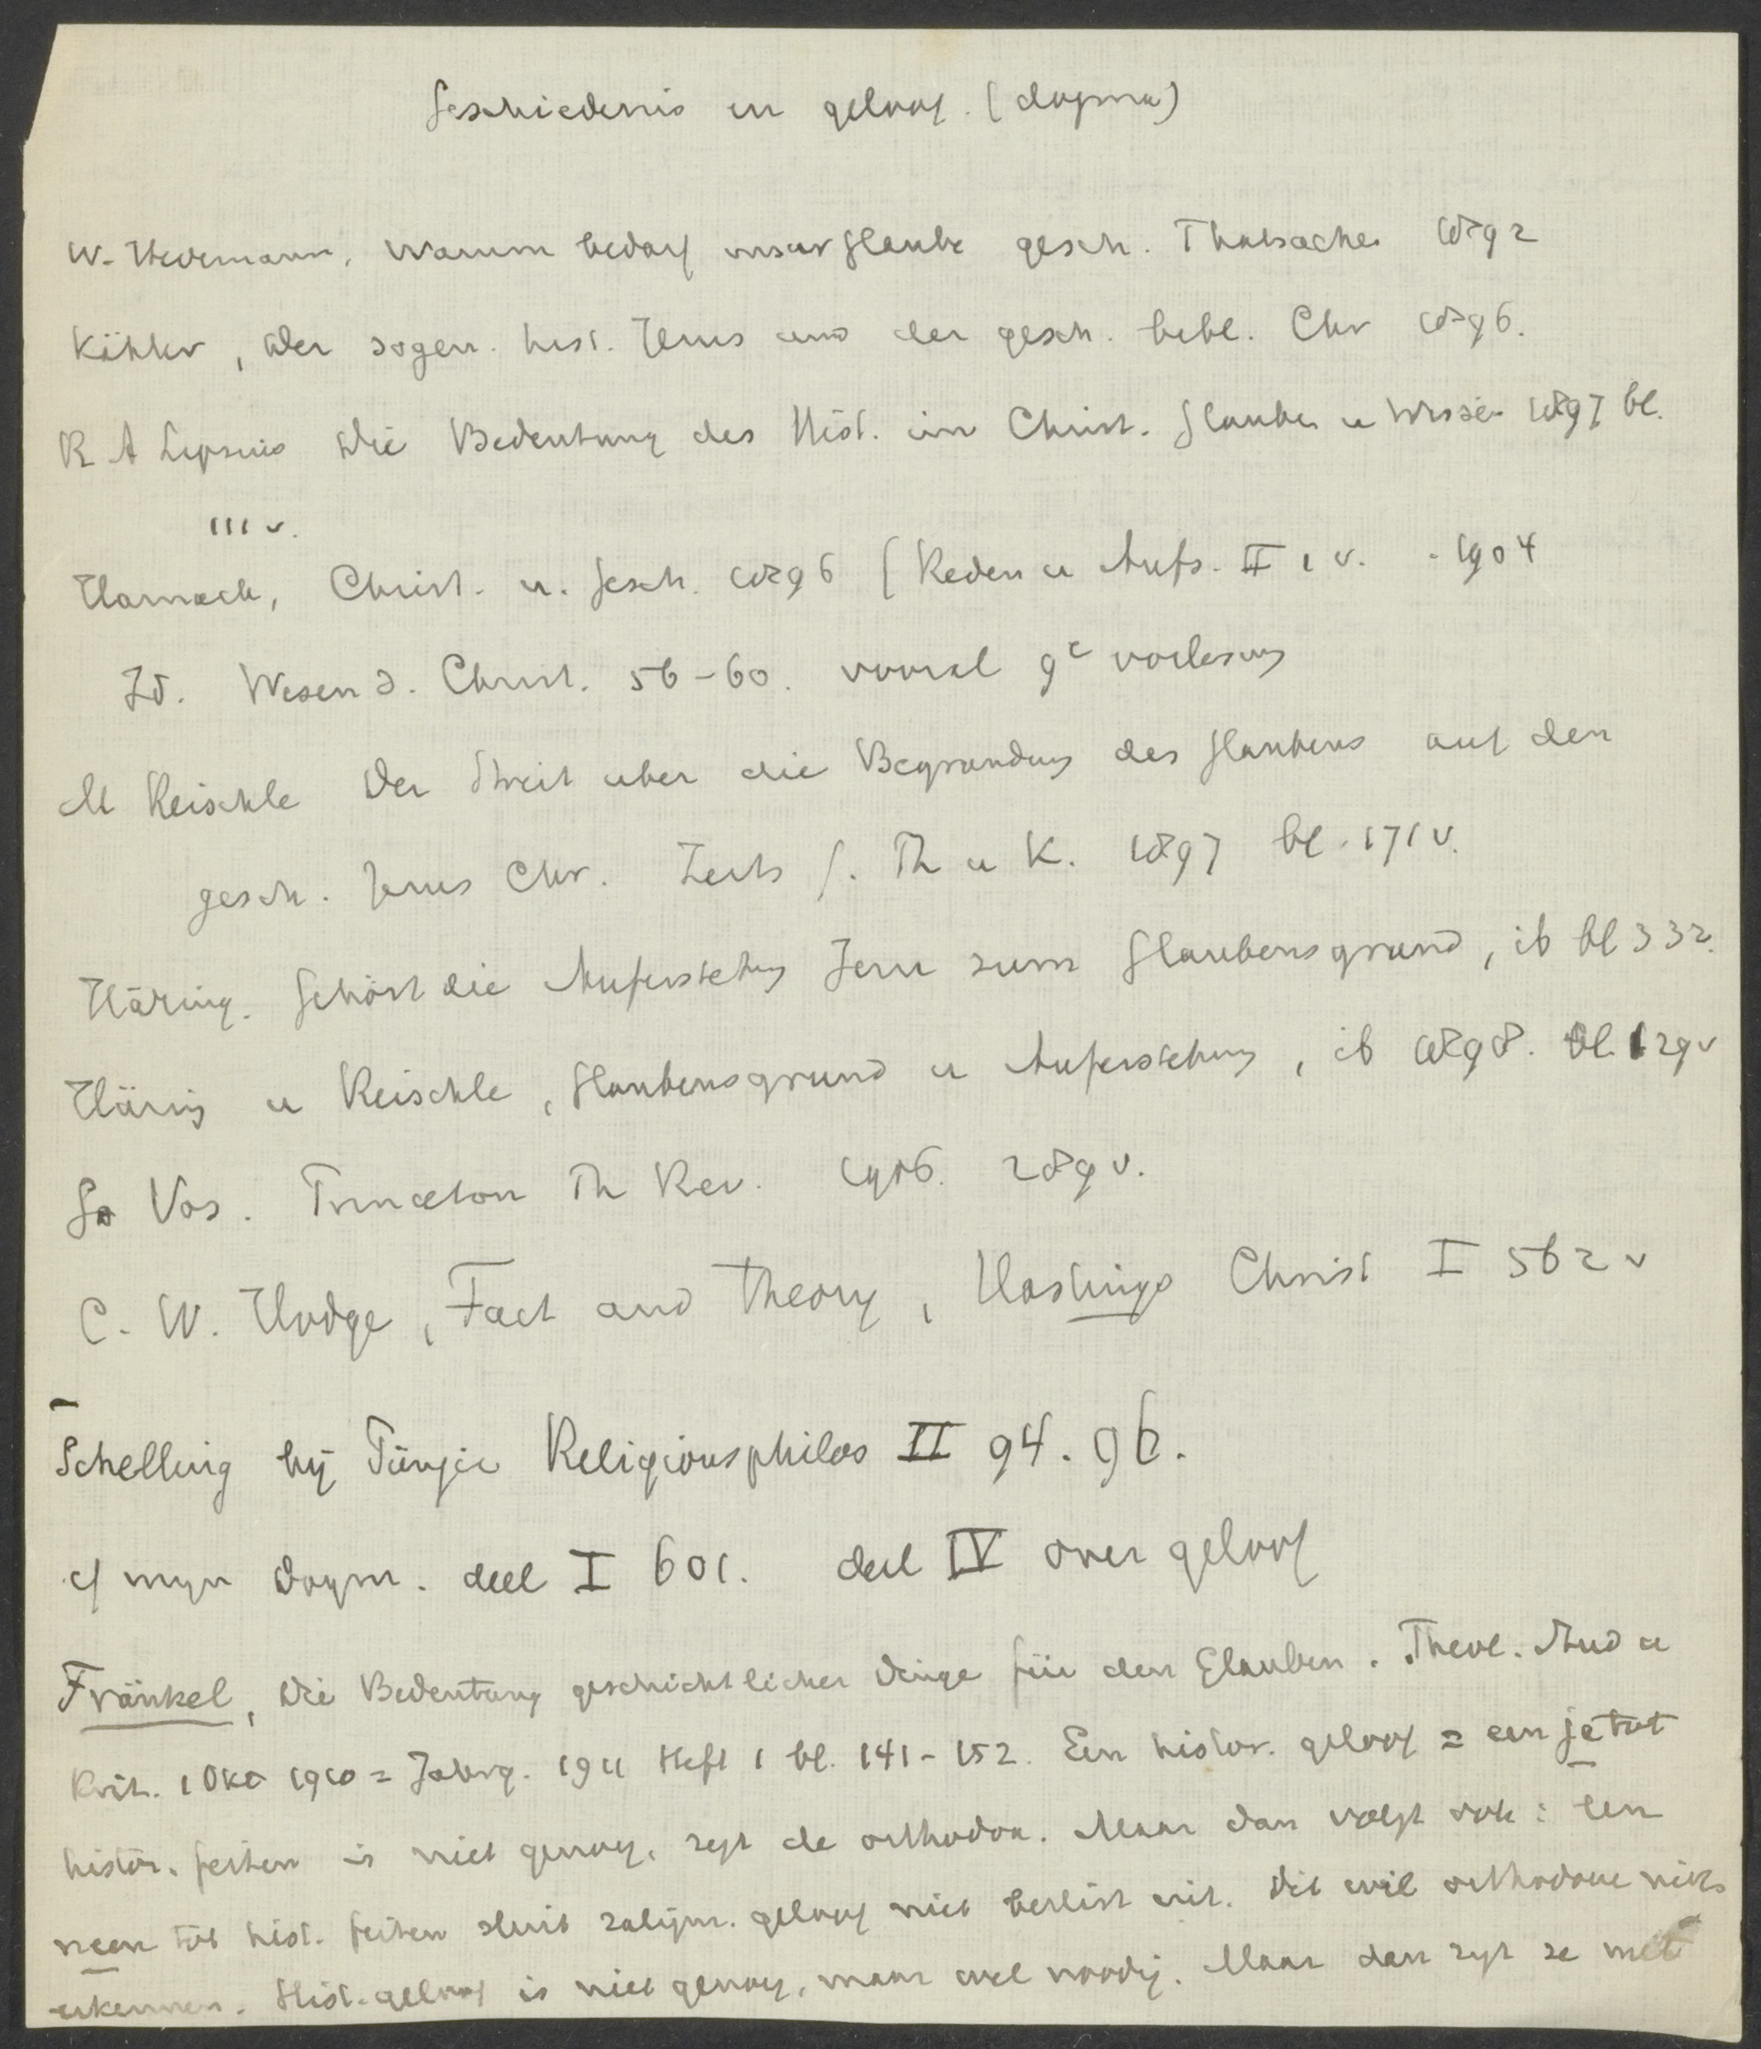 Geschiedenis en geloof. (dogma)
W. Herrmann, Warum bedarf unser Glaube gesch. Thatsachen 1892
Kähler, Der sogen. hist. Jesus und der gesch. bibl. Chr 1896.
R A Lipsius Die Bedeutung des Hist. im Christ. Glauben u Wissen 1897 bl.
111 v.
Harnack, Christ. u. Gesch. 1896 (Reden u Aufs. II 1 v. - 1904
Id. Wesen d. Christ. 56-60. vooral 9e vorlesung
M Reischle Der Streit uber die Begrundung des Glaubens auf den
gesch. Jesus Chr. Zeits f. Th u K. 1897 bl. 171 v.
Häring. Gehört die Auferstehung Jesu zum Glaubensgrund, ib bl 332.
Häring u Reischle, Glaubensgrund u Auferstehung, ib 1898. bl. 129 v
G Vos. Princeton Th Rev. 1906. 289 v.
C. W. Hodge, Fact and Theory, Hastings Christ I 562 v
Schelling bij Pünjer Religionsphilos II 94. 96.
cf mijn Dogm. deel I 601. deel IV over geloof
Fränkel, Die Bedeutung geschichtlicher Dinge für den Glauben. Theol. Stud u
Krit. 1 Okt 1910 = Jahrg. 1911 Heft 1 bl. 141-152. Een histor. geloof = een ja tot
histor. feiten is niet genoeg, zegt de orthodox. Maar dan volgt ook: een
neen tot hist. feiten sluit zaligm. geloof niet beslist uit. Dit wil orthodoxie niet
erkennen. Hist. geloof is niet genoeg, maar wel noodig. Maar dan zegt ze met